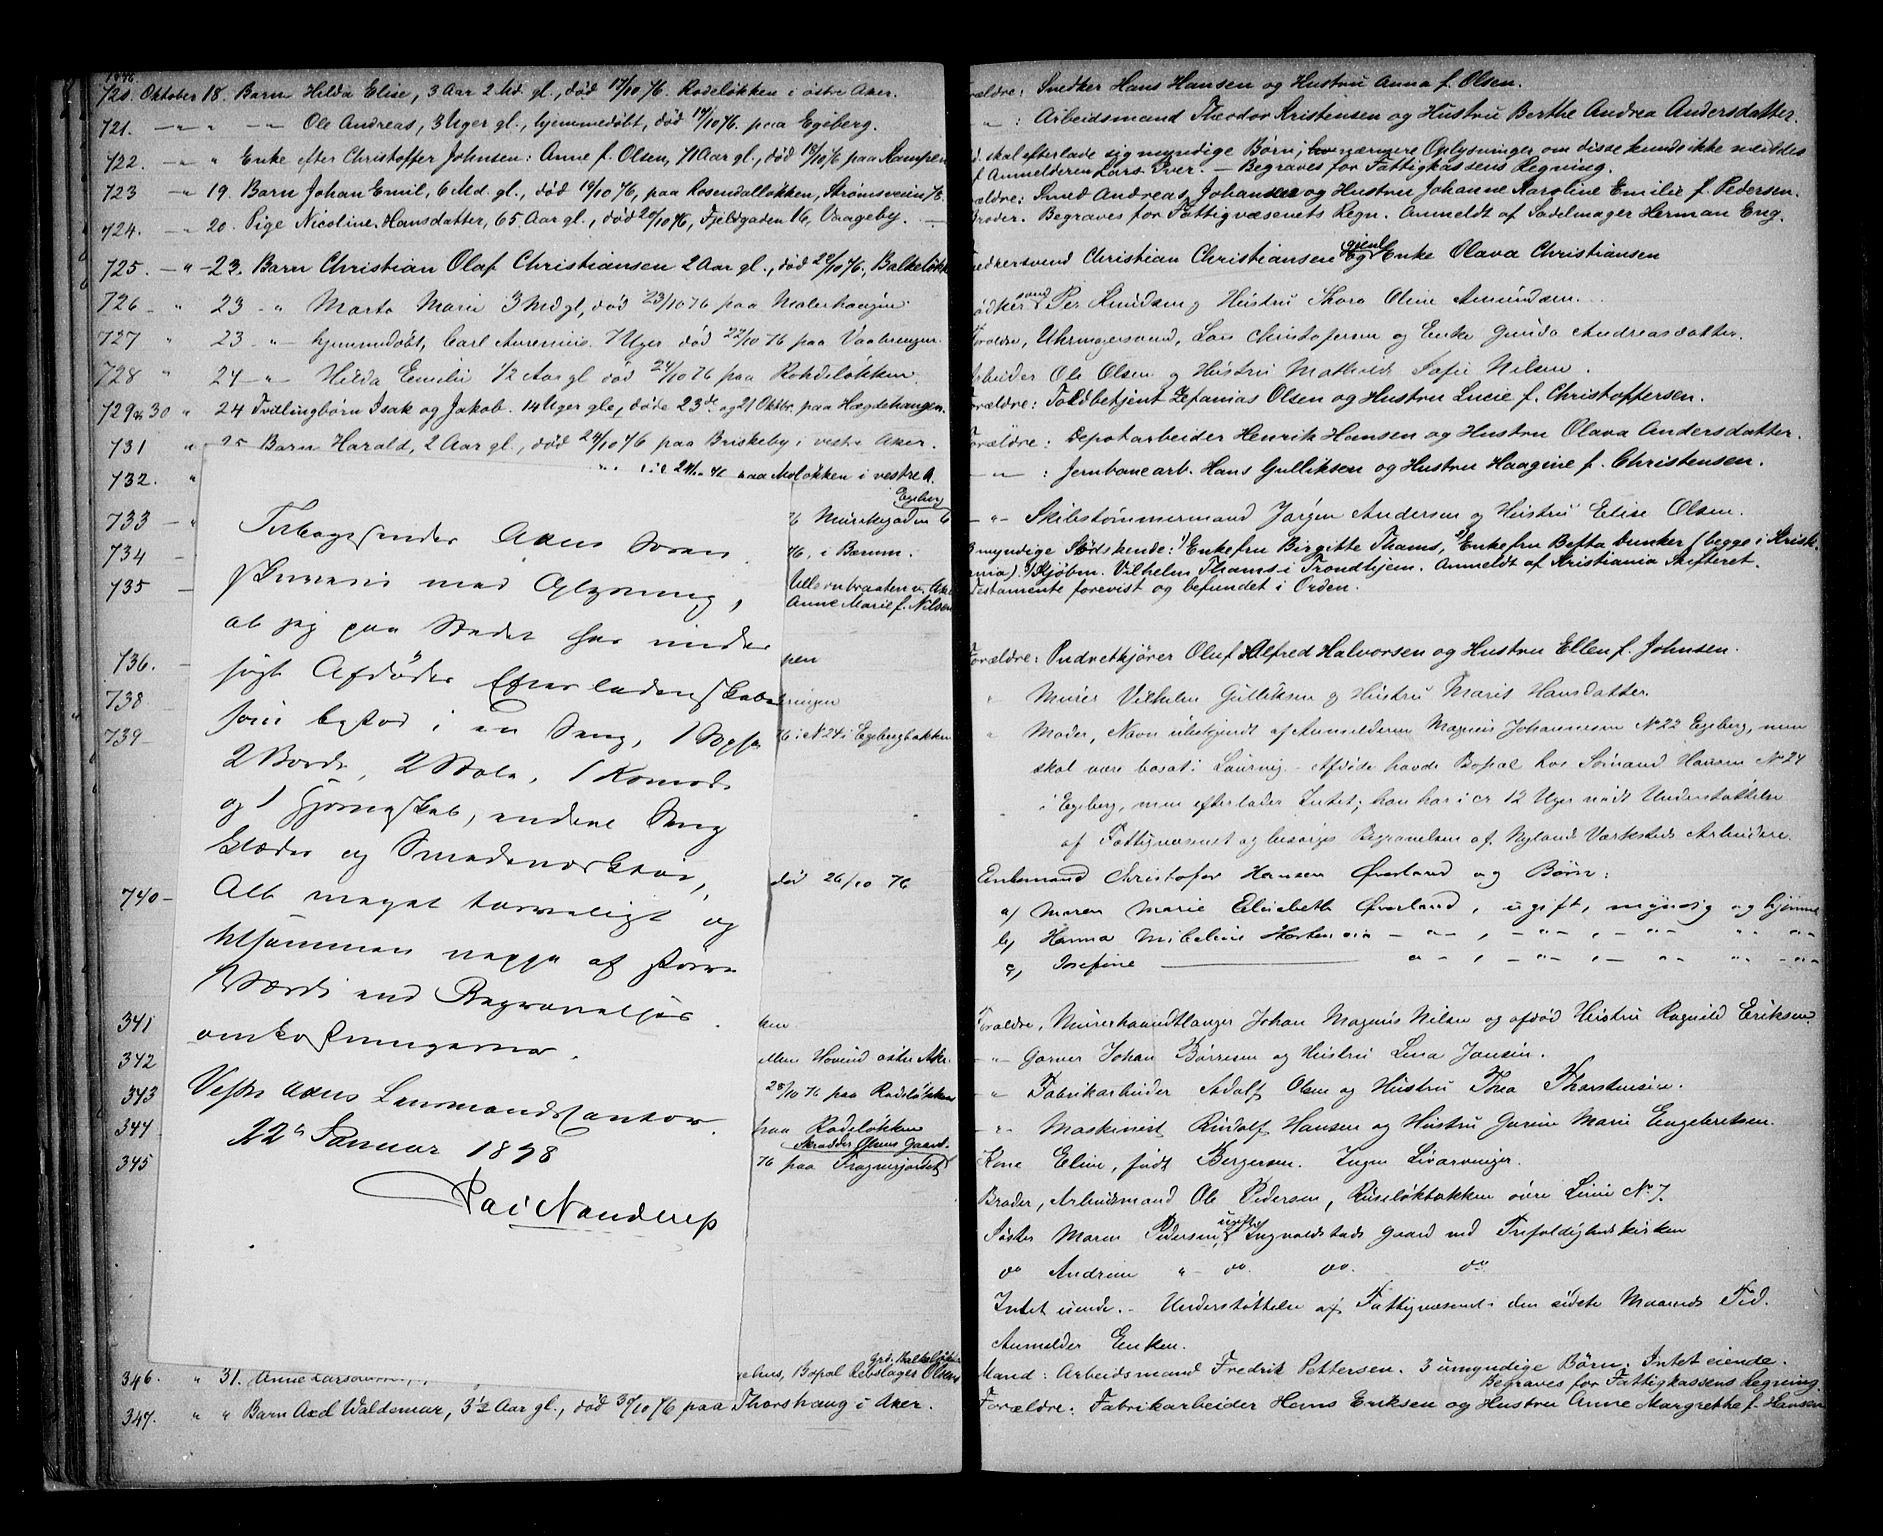 1876.
720. Oktober 18. Barn Hilda Elise, 3 Aar 2 Md. gl., død 17/10 76. Rodeløkken i østre Aker.
721. — " — " — Ole Andreas, 3 Uger gl., hjemmedøbt, død 17/10 76. paa Egeberg.
722. — " " Enke efter Christoffer Johnsen: Anne f. Olsen, 71 Aar gl., død 18/10 76 paa Kampen
723 — " 19. Barn Johan Emil, 6 Md. gl., død 19/10 76, paa Rosendalløkken, Strømsveien 76.
724. — " 20. Pige Nicoline Hansdatter, 65 Aar gl., død 20/10 76, Fjeldgaden 16, Vaageby. —
725. — " — 23. Barn Christian Olaf Christiansen 2 Aar gl., død 20/10 76, Balkeløkk
726 — " 23 — " Marta Marie 3 Md gl, død 23/10 76 paa Malerhaugen
727 " 23 — " — hjemmedøbt, Carl 7 Uger død 22/10 76 paa Vaalerengen
728 " 24 — " — Hilda Emilie 1/2 Aar gl død 24/10 76 paa Rohdeløkken
729 & 30 " 24 Tvillingbørn Isak og Jakob. 14 Uger gle, døde 23de og 21 Oktbr. paa Hægdehaugen.
731 " 25 Barn Harald, 2 Aar gl., død 24/10 76 paa Briskeby i vestre Aker.
732. " paa Moløkken i vestre A.
Egeberg
733 — " 76 Munkegaden 6
734 — 76, i Bærum.
735 — Ullernbraaten v. Aker
Anne Marie f. Nilsen
736. — pen
738 ringen
739 — 76 i No 24 i Egebergbakken
740 — død 26/10 76
341 ken
342 ellem Hovind østre Aker
343 28/10 76 paa Rodeløkken
344 paa Rodeløkken
Skrædder Olsens Gaard.
345 76 paa Frognerjordet
346. " 31. Anne Larsdatter ehus, Bopæl Rebslager Olsens
Grd. Balkeløkk
347. " " Barn Axel Waldemar, 3½ Aar gl., død 30/10 76 paa Thorshaug i Aker.
Tilbagesendes Akers Soren
skriveri med Oplysning,
at jeg paa Stedet har under
søgt Afdødes Efterladenskaber
som bestod i en Seng, 1 Sopha
2 Borde, 2 Stole, 1 Komode
og 1 Hjørneskab, endvel Seng
klæder og Smedeværktøi,
Alt meget tarveligt og
tilsammen neppe af større
Værdi end Begravelses
omkostningerne.
Vestre Akers Lensmandskontor
22de Januar 1878
Forældre: Snedker Hans Hansen og Hustru Anna f. Olsen.
" : Arbeidsmand Theodor Kristensen og Hustru Berthe Andrea Andersdatter.
skal efterlade sig myndige Børn; nærmere Oplysninger om disse kunde ikke meddeles
af Anmelderen Lars Iver. — Begraves for Fattigkassens Regning.
Forældre: Smed Andreas Johansen og Hustru Johanne Karoline Emilie f. Pedersen.
Broder. Begraves for Fattigvæsenets Regn. Anmeldt af Sadelmager Herman Eng.
Snedkersvend Christian Christiansens Enke Olava Christiansen
Bødkersvend Per Knudsen og Hustru Thora Oline Amundsen.
Forældre, Uhrmagersvend, Lars Christofersen og Enke Gunda Andreasdatter.
Arbeider Ole Olsen og Hustru Mathilde Sofie Nilsen.
Forældre: Toldbetjent Zefanias Olsen og Hustru Lucie f. Christoffersen.
Forældre: Depotarbeider Henrik Hansen og Hustru Olava Andersdatter.
— " — : Jernbanearb. Hans Gulliksen og Hustru Haagine f. Christensen.
— " — Skibstømmermand Jørgen Andersen og Hustru Elise Olsen.
3 myndige Sødskende: 1) Enkefru Birgitte Thams, 2) Enkefru Betta Dunker (begge i Kristi-
ania). 3) Kjøbm. Vilhelm Thams i Trondhjem. Anmeldt af Kristiania Skifteret.
Testamente forevist og befundet i Orden.
Forældre: Pudretkjører Oluf Alfred Halvorsen og Hustru Ellen f. Johnsen.
" Murer Vilhelm Gulliksen og Hustru Maris Hansdatter.
" Moder, Navn ubekjendt af Anmelderen Magnus Johannesen No 22 Egeberg, men
skal være bosat i Laurvig. — Afdøde havde Bopæl hos Sømand Hansen No 24
i Egeberg, men efterlader Intet; han har i cr 12 Uger nydt Understøttelse
af Fattigvæsenet og besørges Begravelsen af Nylands Værksteds Arbeidere.
Enkemand Kristofer Hansen Øverland og Børn:
a) Maren Marie Elisabeth Øverland, ugift, myndig og hjemme
b) Hanna — " — , — " — , — " — " — " —
c) Josefine — " — , — " — , — " — " — " —
Forældre, Murerhaandtlanger Johan Magnus Nilsen og afdød Hustru Ragnild Eriksen.
— " — Garver Johan Børresen og Hustru Lina Jansen.
— " Fabrikarbeider Adolf Olsen og Hustru Thea Thorstensen.
— " — Maskinist Rudolf Hansen og Hustru Gurine Marie Engebretsen.
Kone Eline, født Bergersen. Ingen Livsarvinger.
Broder, Arbeidsmand Ole Pedersen, Ruseløkbakken øvre Linie No 7.
Søster Maren Pedersen, ugift Ingvoldstads Gaard ved Trefoldighedskirken
do Andrine " do. do. do.
Intet eiende. — Understøttelse af Fattigvæsenet i den sidste Maaneds Tid.
Anmelder Enken.
Mand: Arbeidsmand Fredrik Pettersen. 3 umyndige Børn. Intet eiende.
Begraves for Fattigkassens Regning.
Forældre: Fabrikarbeider Hans Eriksen og Hustru Anne Margrethe f. Hansen